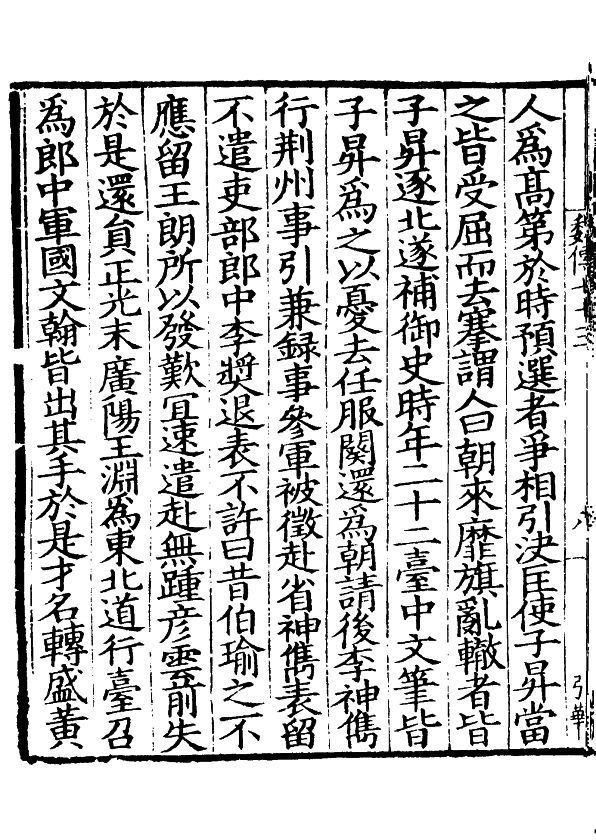 人爲髙第於時預選者爭相引決匡使子昇當
之皆受屈而去搴謂人曰朝來靡旗亂轍者皆
子昇逐北遂補御史時年二十二臺中文筆皆
子昇爲之以憂去任服闋還爲朝請後李神儁
行荆州事引兼録事參軍被徴赴省神儁表留
不遣吏部郎中李奬退表不許曰昔伯瑜之不
應留王朗所以發歎冝速遣赴無踵彦雲前失
於是還貟正光末廣陽王淵爲東北道行臺召
爲郎中軍國文翰皆出其手於是才名轉盛黄